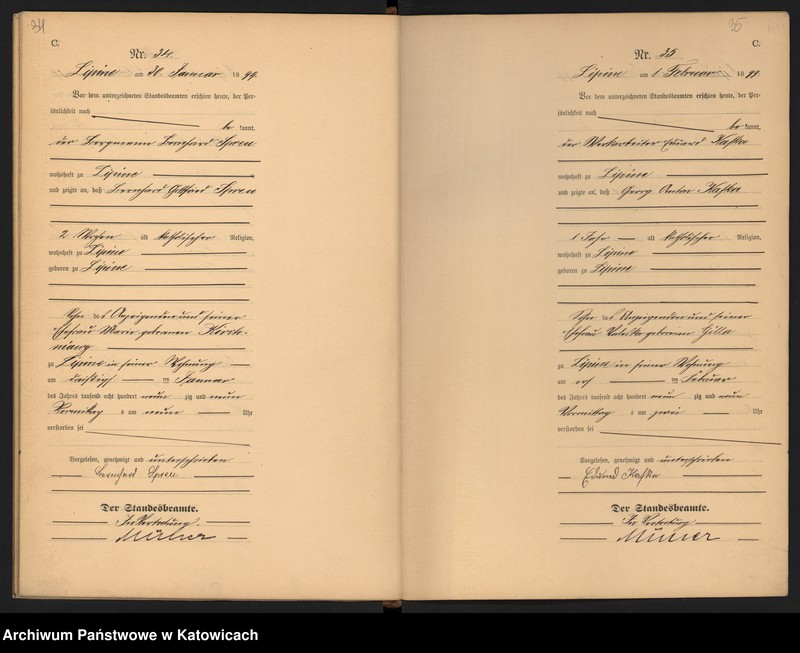 34
C.
Nr. 34.
Lipine am 30. Januar 1899.
Vor dem unterzeichneten Standesbeamten erschien heute, der Per-
sönlichkeit nach
be kannt,
der Bergmann Bernhard Spree
wohnhaft zu Lipine
und zeigte an, daß Bernhard Gottfried Spree
2 Wochen alt katholischer Religion,
wohnhaft zu Lipine
geboren zu Lipine
Sohn des Anzeigenden und seiner
Ehefrau Marie geborenen
zu Lipine in seiner Wohnung
am dreißigsten Januar
des Jahres tausend acht hundert neun zig und neun
Vormittag s um neun Uhr
verstorben sei
Vorgelesen, genehmigt und unterschrieben
Bernhard Spree
Der Standesbeamte.
In Vertretung
Müller
35
C.
Nr. 35
Lipine am 1 Februar 1899.
Vor dem unterzeichneten Standesbeamten erschien heute, der Per-
sönlichkeit nach
be kannt,
der Werkarbeiter Eduard Kaska
wohnhaft zu Lipine
und zeigte an, daß Georg Anton Kaska
1 Jahr alt katholischer Religion,
wohnhaft zu Lipine
geboren zu Lipine
Sohn des Anzeigenden und seiner
Ehefrau Valeska geborenen
zu Lipine in seiner Wohnung
am Februar
des Jahres tausend acht hundert neun zig und neun
Vormittag s um zwei Uhr
verstorben sei
Vorgelesen, genehmigt und unterschrieben
Eduard Kaska
Der Standesbeamte.
In Vertretung
Müller
Archiwum Państwowe w Katowicach